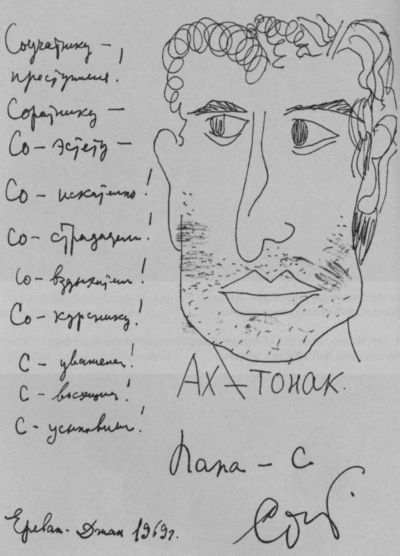 Соучастнику —
преступления!
Соратнику —
Со-эстету —
Со-искателю!
Со-страдателю!
Со-вздыхателю!
Со-курснику!
С-уважением!
С-восхищением!
С-усыновлением!
АХ-ТОНАК.
Папа-С
Ереван-Джан 1969г.